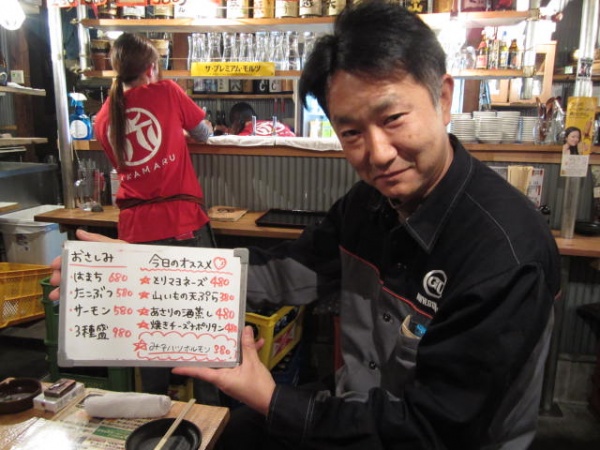 ザ・プレミアム・モルツ
KAMARU
おさしみ
はまち 680
たこぶつ 580
サーモン 580
3種盛 980
今日のオススメ
★とりマヨネーズ 480
★山いもの天ぷら 380
★あさりの酒蒸し 480
★焼きチーズナポリタン 480